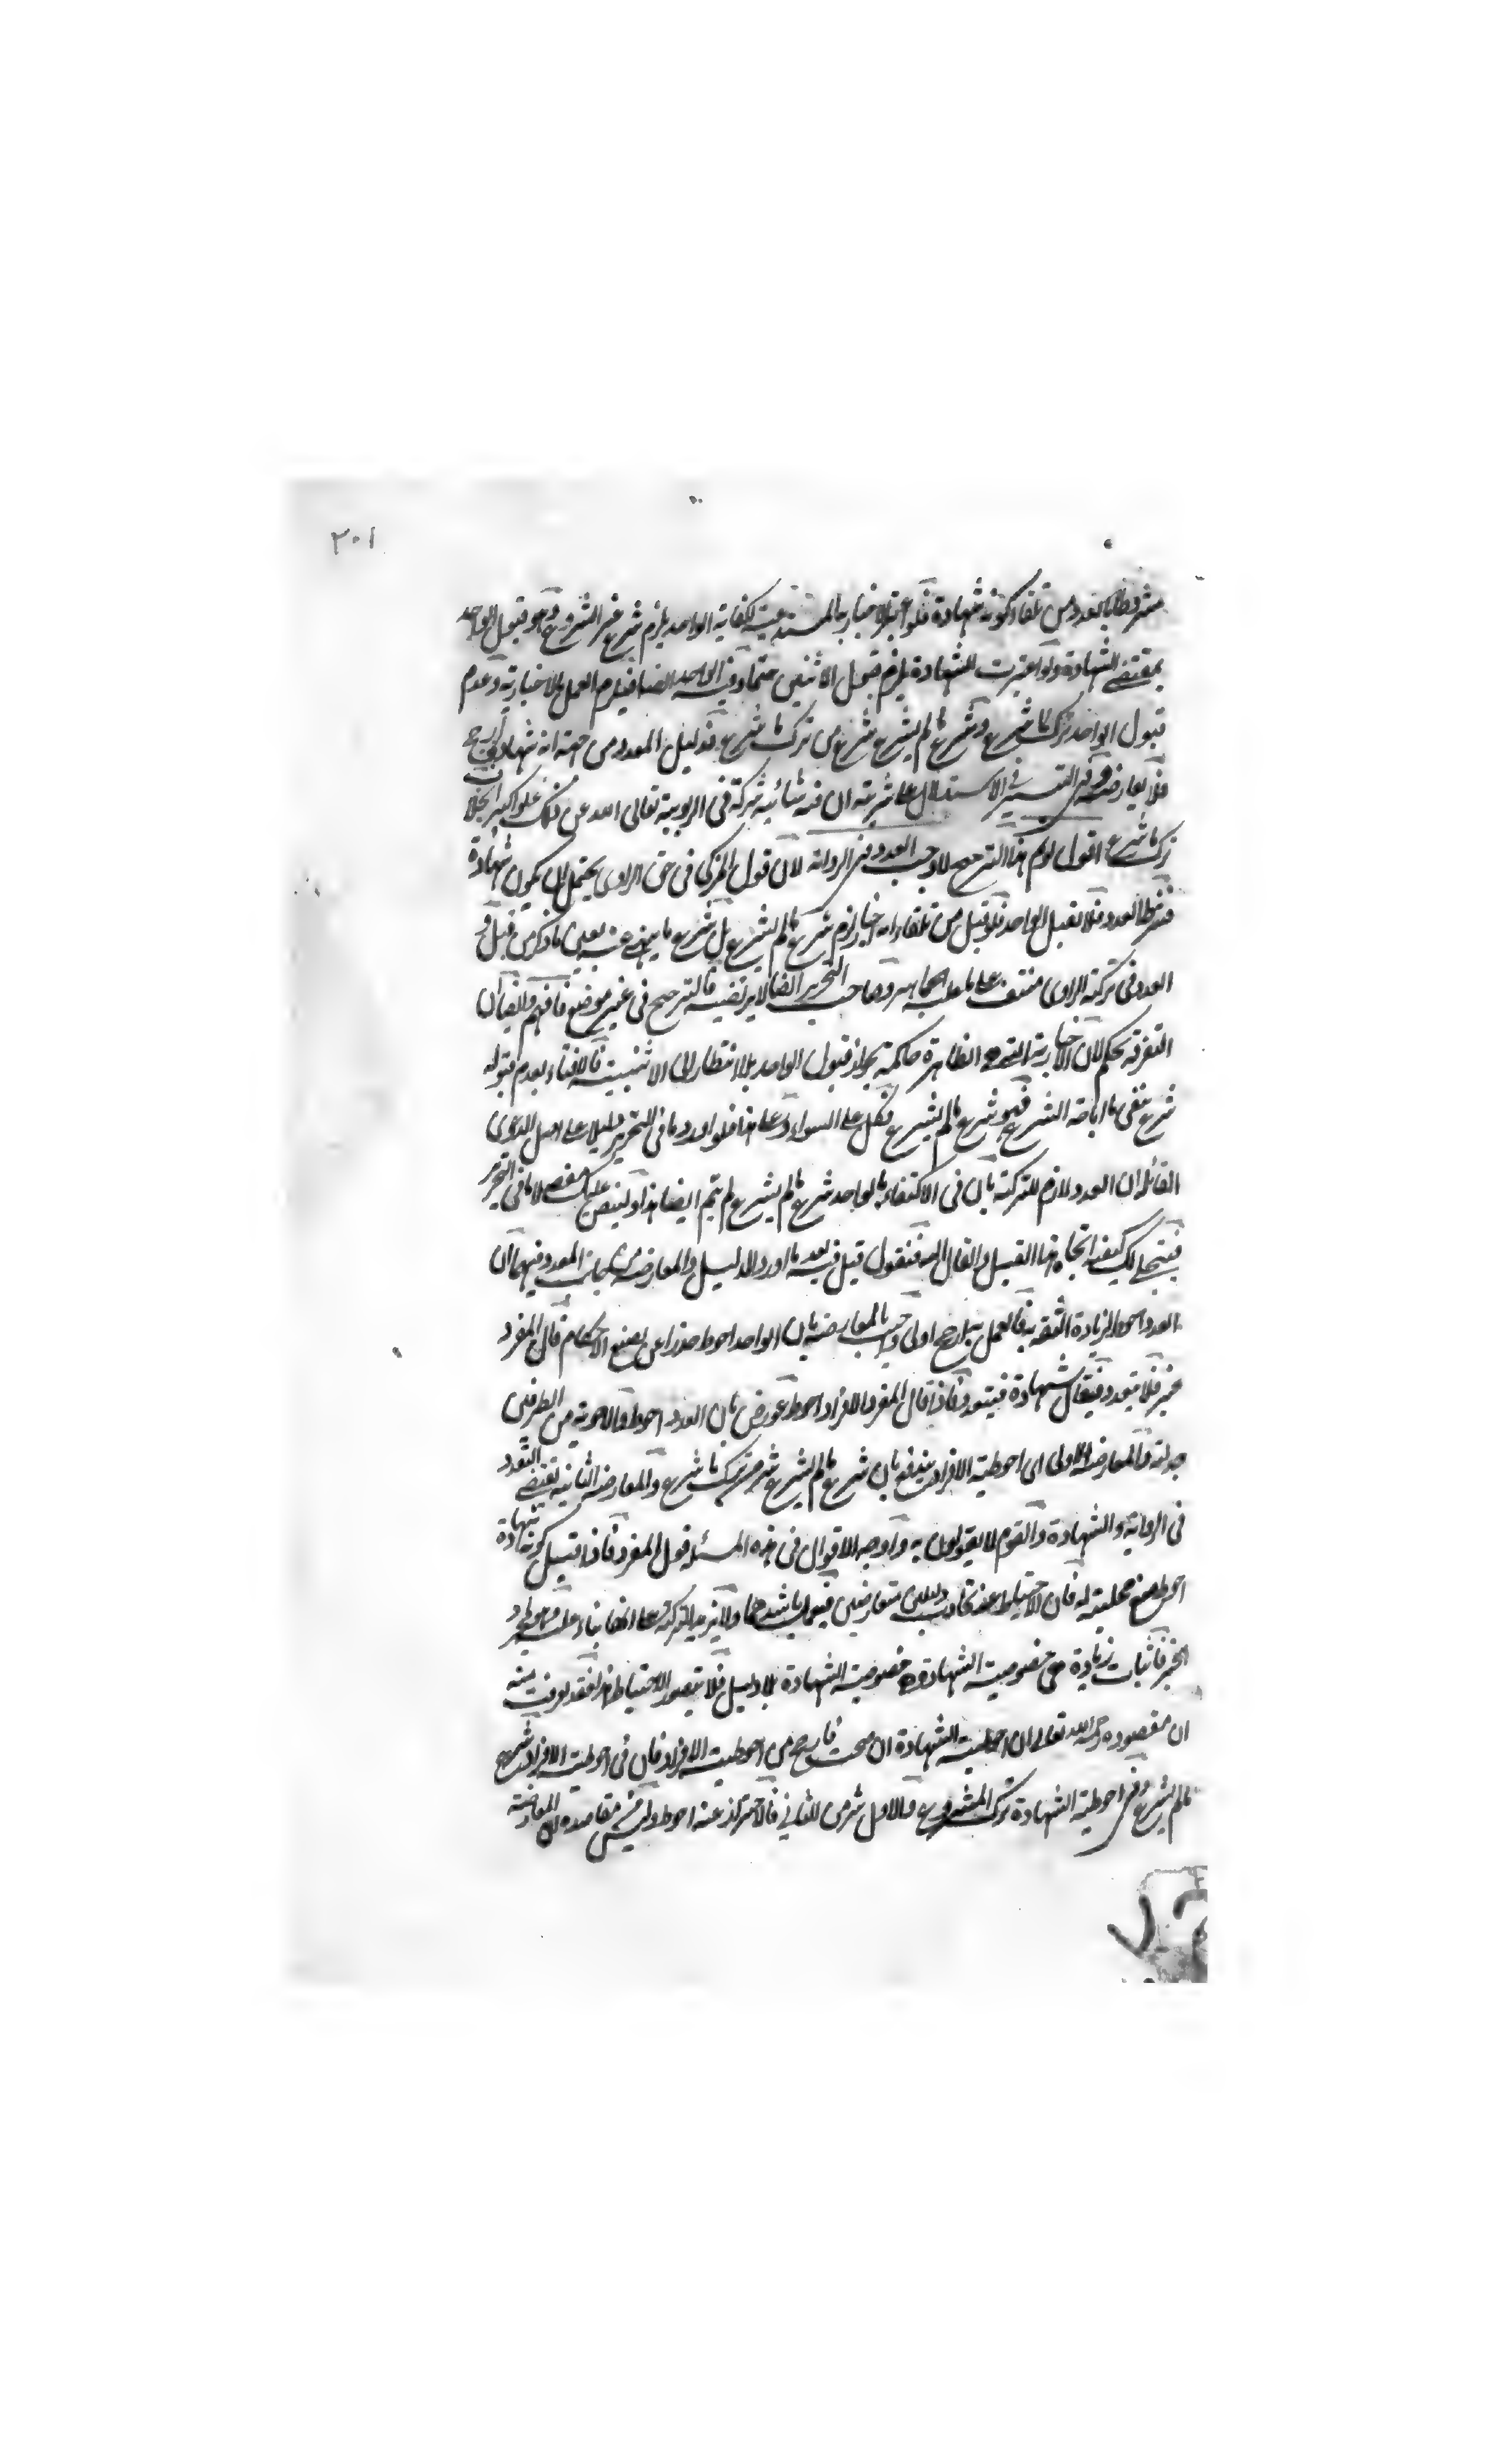 ٣٠١
مشروطا بالعدد من تلقاء كونه شهادة فلو اعتبر الاخبارية المستدعية لكفاية الواحد يلزم شرع غير المشروع وهو قبول الواحد
بمقتضى الشهادة ولو اعتبرت الشهادة يلزم قبول الاثنين حتما وفيه الواحد ايضا فيلزم العمل بالاخبارية وعدم
قبول الواحد ترك ما شرع وشرع ما لم يشرع شرع من ترك ما شرع فدليل المعدد من جهة انه شهادة ارجح
فلا يعارضه وفي التيسير في الاستدلال على شريته ان فيه شائبة شركة في الربوبية تعالى الله عن ذلك علوا كبيرا بخلاف
ترك ما شرع اقول لو تم هذا الترجيح لاوجب العدد في الرواية لان قول المزكي في حق الراوي يحتمل ان يكون شهادة
فشرط العدد فلا يقبل الواحد فلو قبل من تلقاء انه اخبار لزم شرع ما لم يشرع بل شرع ما ينهى عنه بعين ما ذكر من قبل و
العدد في تزكية الراوي منتف على ما عليه الجماهير وصاحب التحرير ايضا لا يرتضيه فالترجيح في غير موضعه فافهم وايضا ان
التفرقة تحكم لان الاخبارية الظاهرة حاكمة بجواز قبول الواحد بلا انتظار الى الاثنينية فالافتاء بعدم قبوله
شرع نفي ما اباحه الشرع فهو شرع ما لم يشرع فكل على السواء وعلى هذا فلو اورد ما في التحرير دليلا على اصل الدعوى
القائلة ان العدد لازم للتزكية بان في الاكتفاء بالواحد شرع ما لم يشرع لم يتم ايضا هذا ولينص عليك مفصلا ما في التحرير
فيتجه لك كيفية اتجاه هذا القيل والقال اليه فنقول قيل فيه بعد ما اورد الدليل والمعارضة من جانب المعدد فيهما ان
العدد احوط لزيادة الثقة به فالعمل به ارجح اولى واجيب بالمعارضة بان الواحد احوط حذرا عن تضييع الاحكام قال المفرد
خبر فلا يتعدد فيقال شهادة فيتعدد فاذا قال المفرد الافراد احوط عورض بان العدد احوط والاجوبة من الطرفين
جدلية والمعارضة الاولى اي احوطية الافراد يندفع بان شرع ما لم يشرع شر من ترك ما شرع والمعارضة الثانية تقتضي التعدد
في الرواية والشهادة والقوم لا يقولون به واوجه الاقوال في هذه المسئلة قول المفرد فاذا قيل كونه شهادة
احوط منع محليته له فان الاحتياط عند تجاذب دليلين متعارضين فيعمل باشدهما ولا تزيد التزكية على انها ثناء عليه
الخبر فاثبات زيادة هي خصوصية الشهادة خصوصية الشهادة بلا دليل فلا يتصور الاحتياط فقد عرفت منه
ان مقصوده رحمه الله تعالى ان احوطية الشهادة ان صحت فارجح من احوطية الافراد فان في احوطية الافراد شرع
ما لم يشرع وفي احوطية الشهادة ترك المشروع والاول شر من الثاني فالاحتراز عنه احوط وليس مقاصده ان المعارضة